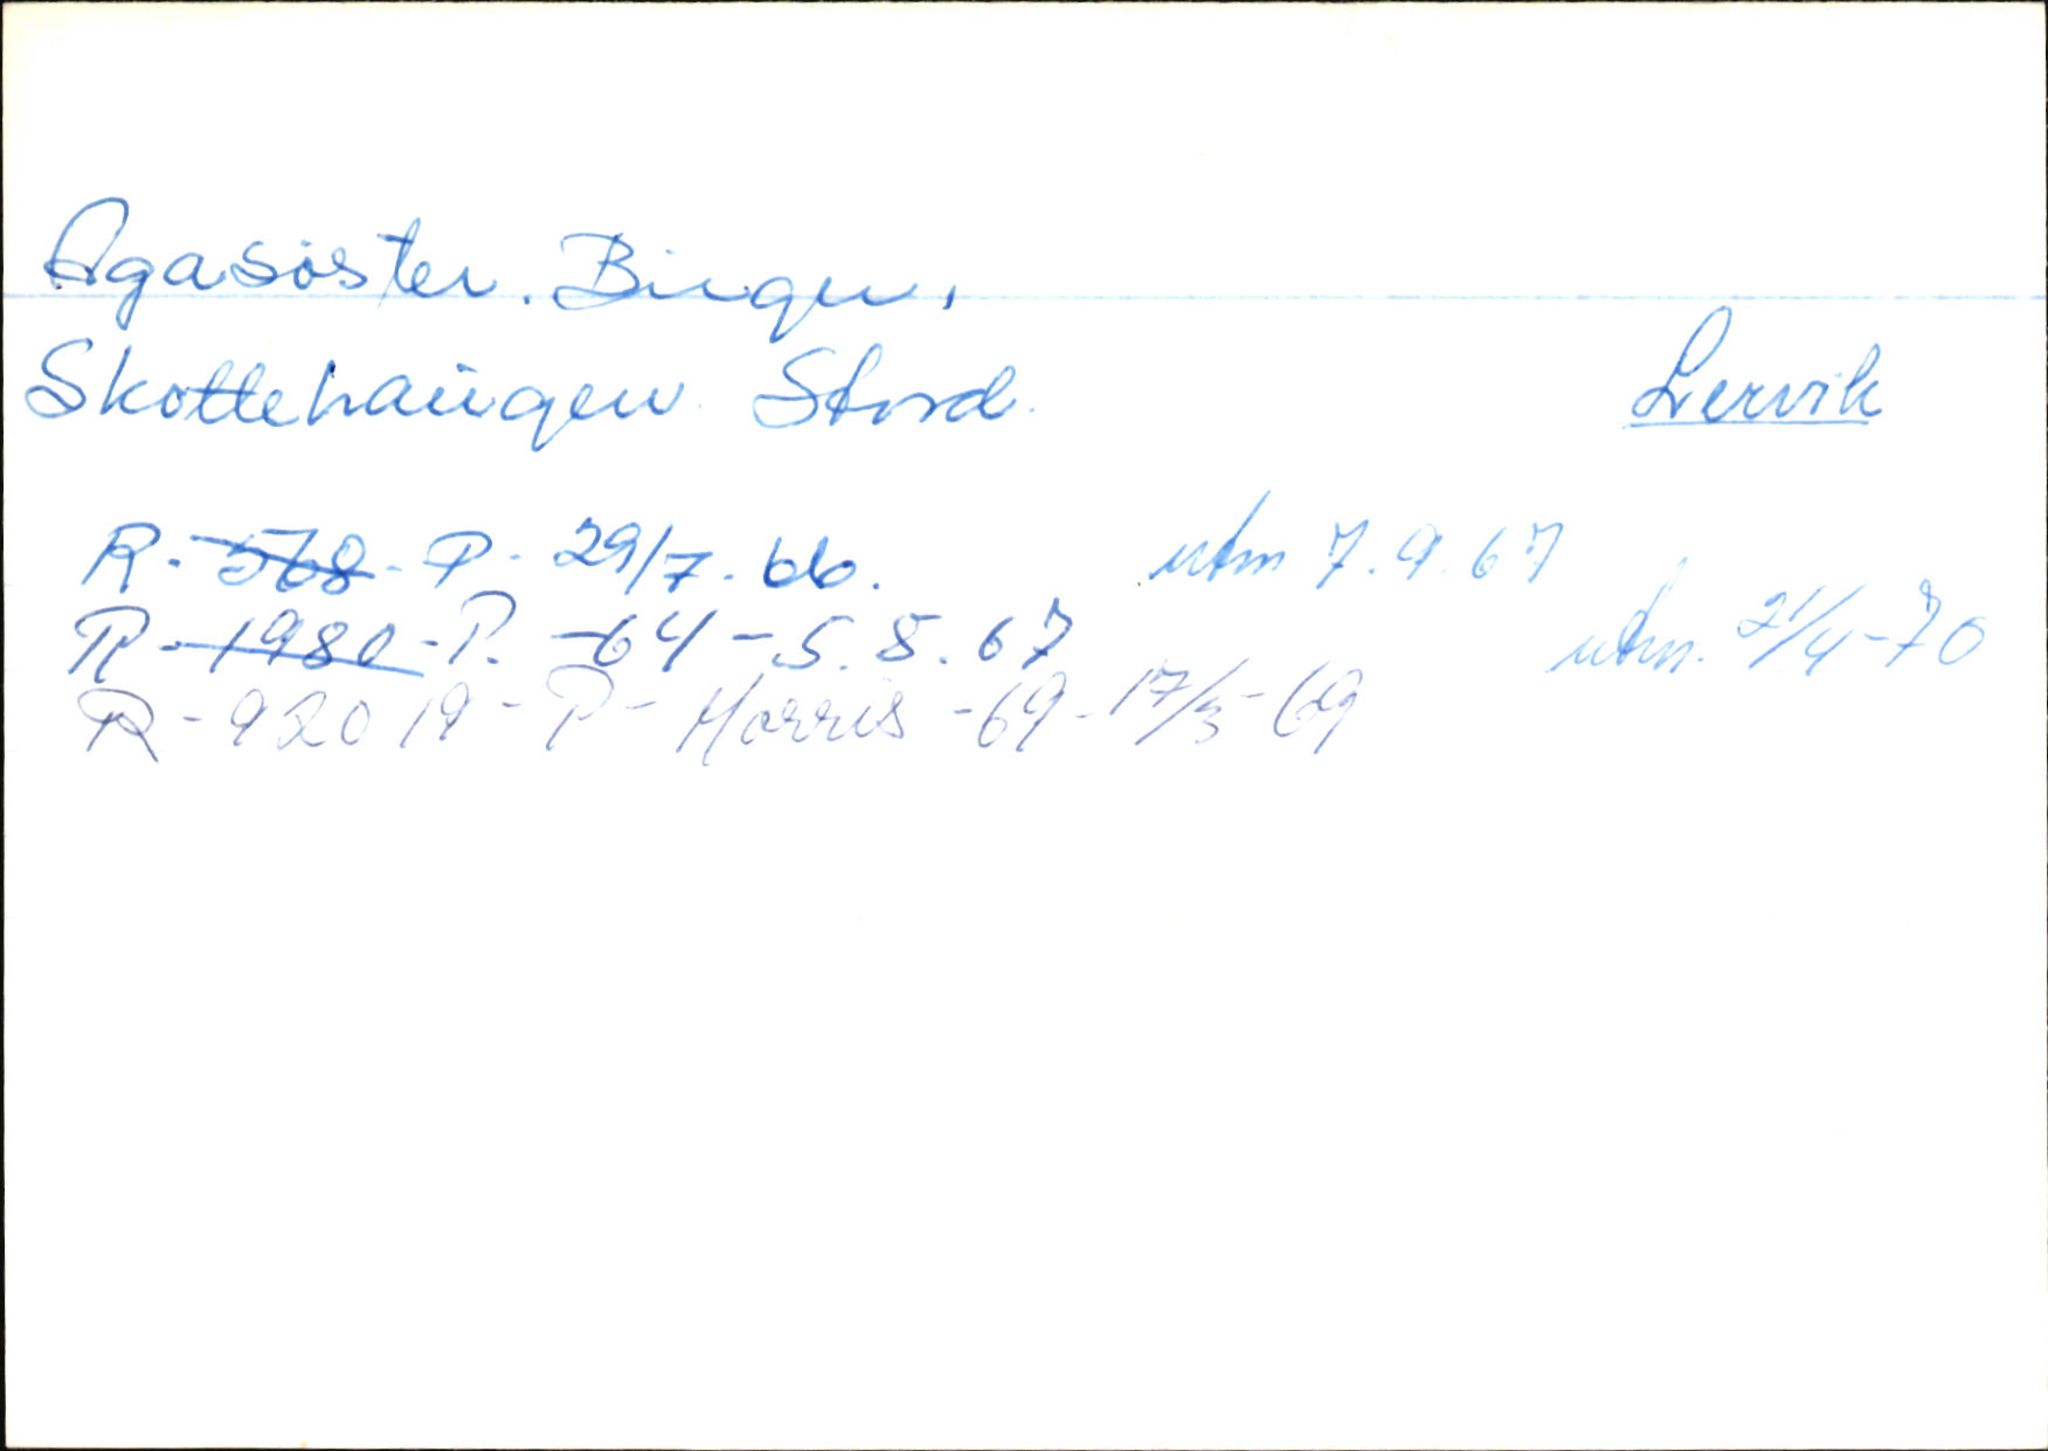 Agasøster. Birger,
Skottehaugen Stord.
Lervik
R. 568 - P - 29/7. 66. utm 7.9.67
R - 1980 - P. - 64 - 5.8.67 utm. 21/4-70
R - 92019 - P - Morris - 69 - 17/3-69